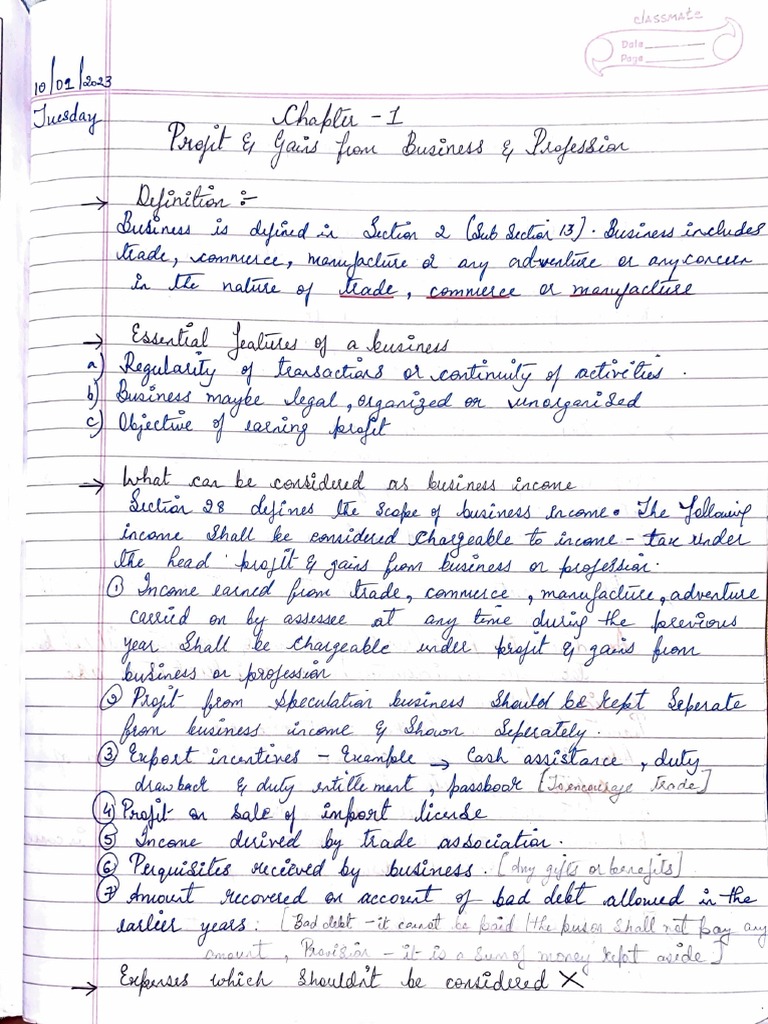 classmate
Date
Page
10/01/2023
Tuesday
Chapter - 1
Profit & Gains from Business & Profession
→ Definition :-
Business is defined in Section 2 (Sub Section 13). Business includes
trade, commerce, manufacture or any adventure or any concern
in the nature of trade, commerce or manufacture
→ Essential features of a business
a) Regularity of transactions or continuity of activities.
b) Business maybe legal, organized or unorganised
c) Objective of earning profit
→ What can be considered as business income
Section 28 defines the scope of business income. The following
income shall be considered chargeable to income - tax under
the head profit & gains from business or profession.
① Income earned from trade, commerce, manufacture, adventure
carried on by assessee at any time during the previous
year shall be chargeable under profit & gains from
business or profession
② Profit from speculation business should be kept seperate
from business income & shown seperately.
③ Export incentives - Example → Cash assistance, duty
drawback & duty entitlement, passboor [To encourage trade]
④ Profit on sale of inport license
⑤ Income derived by trade association.
⑥ Perquisites recieved by business. [Any gifts or benefits]
⑦ Amount recovered on account of bad debt allowed in the
earlier years: [Bad debt - it cannot be paid / the person shall not pay any
amount, Provision - it is a sum of money kept aside]
→ Expenses which shouldn't be considered X